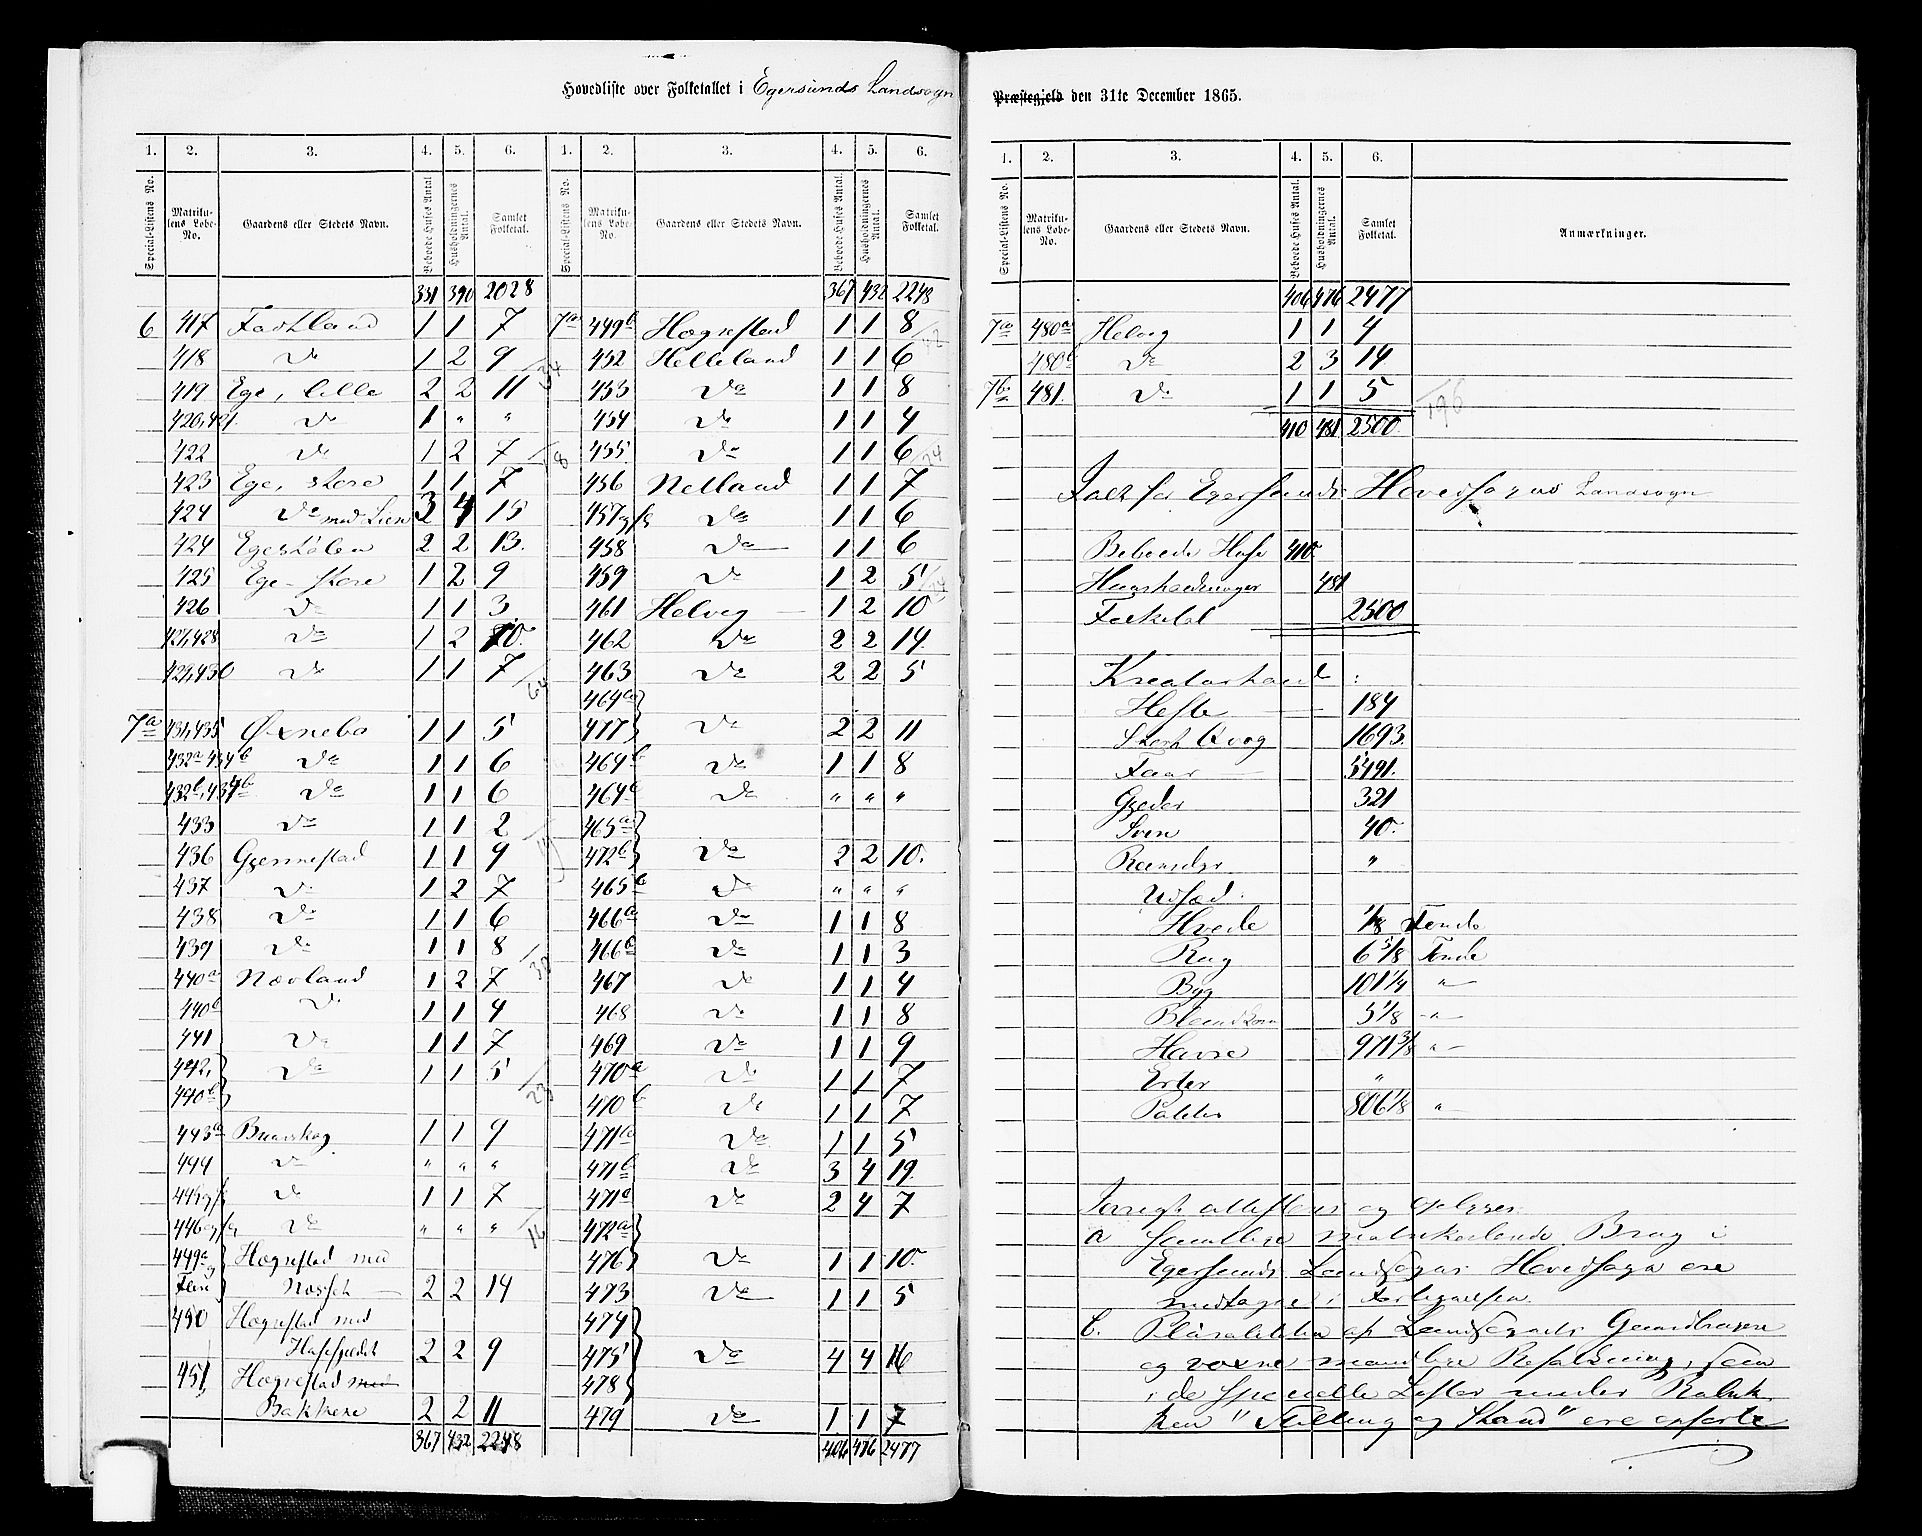 Hovedliste over Folketallet i Egersunds Landsogn
1. 2. 3. 4. 5. 6. 1. 2. 3. 4. 5. 6.
Special-Listens No. Matrikulens Løbe-No. Gaardens eller Stedets Navn. Beboede Huses Antal Husholdningernes Antal. Samlet Folketal. Special-Listens No. Matrikulens Løbe-No. Gaardens eller Stedets Navn. Beboede Huses Antal. Husholdningernes Antal. Samlet Folketal.
331 390 2028
6 417 1 1 7
418 Do 1 2 9
34
419 Ege, lille 2 2 11
420, 421. Do 1 " "
422 Do 1 2 7
18
423 Ege, store 1 1 7
424 Do med Lien 3 4 15
424 Egestølen 2 2 13.
425 Ege store 1 2 9
426 Do 1 1 3
427, 428 Do 1 2 10.
429, 430 Do 1 1 7
64
7a 431, 435 Øxnebo 1 1 5
432a 434b Do 1 1 6
432b, 434b Do 1 1 6
433 Do 1 1 2
19
436 Gjermestad 1 1 9
437 Do 1 2 7
438 Do 1 1 6
439 Do 1 1 8
30
440a Nævland 1 2 7
440b Do 1 1 4
441 Do 1 1 7
442, 440b Do 1 1 5
23
443a Buarskog 1 1 9
444 Do " " "
445 Do 1 1 7
446 Do " " "
16
449a og Flere Hægrestad med Nosset 2 2 14
450 Hægrestad med
2 2 9
451, Hægrestad med
Bakkene 2 2 11
367 432 2248
367 432 2248
7a 449b Hægrestad 1 1 8
42
452 Helleland 1 1 6
453 Do 1 1 8
454 Do 1 1 4
455 Do 1 1 6
24
456 Netland 1 1 7
457 Do 1 1 6
458 Do 1 1 6
459 Do 1 2 5
24
461 Helvig 1 2 10
462 Do 2 2 14
463 Do 2 2 5
464a
477 Do 2 2 11
464b Do 1 1 8
464c Do " " "
465a
472b Do 2 2 10.
465b Do " " "
466a Do 1 1 8
466b Do 1 1 3
467 Do 1 1 4
468 Do 1 1 8
469 Do 1 1 9
470a Do 1 1 7
470b Do 1 1 7
471a Do 1 1 5
471b Do 3 4 19.
471c Do 2 4 7
472a
476 Do 1 1 10.
473 Do 1 1 5
474
475 Do 4 4 16
478
479 Do 1 1 7
406 476 2477
Præstegjeld den 31te December 1865.
1. 2. 3. 4. 5. 6.
Special-Listens No. Matrikulens Løbe-No. Gaardens eller Stedets Navn. Beboede Huses Antal. Husholdningernes Antal. Samlet Folketal. Anmærkninger.
406 476 2477
7a 480a Helvig 1 1 4
480b Do 2 3 14
7b 481. Do 1 1 5
196
410 481 2500.
Ialt for Egersunds Hovedsogns Landsogn
Beboede Huse 410
Huusholdninger 481
Folketal 2500
Kreaturhold :
Heste 184
Stort Qvæg 1693.
Faar 5491.
Gjeder 321
Sviin 40.
Reensdyr "
Udsæd.
Hvede 1/8 Tønde
Rug 6 5/8 Tønde
Byg 101 1/4 "
Blandkorn 5 1/8 "
Havre 971 3/8 "
Erter "
Poteter 806 1/8 "
og oplyses
a Samtlige matrikulerede Brug i
Egersunds Landsogns Hovedsogn ere
medtagne i
b. af Landsognets Gaardbrugere
og voxne mandlige Befolkning, som
i de specielle Lister under Rubrik
ken "Stilling og Stand" ere opførte